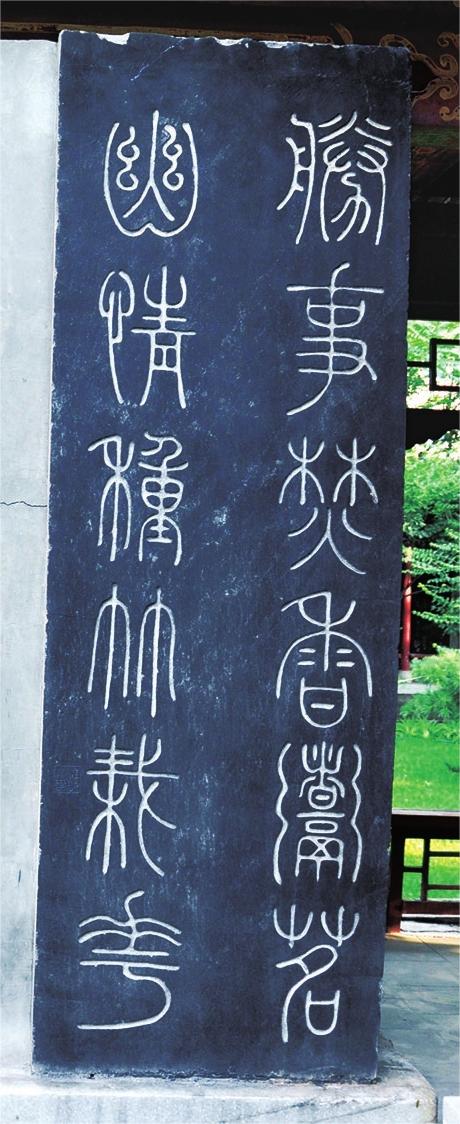 勝事焚香煮茗
幽情種竹栽花